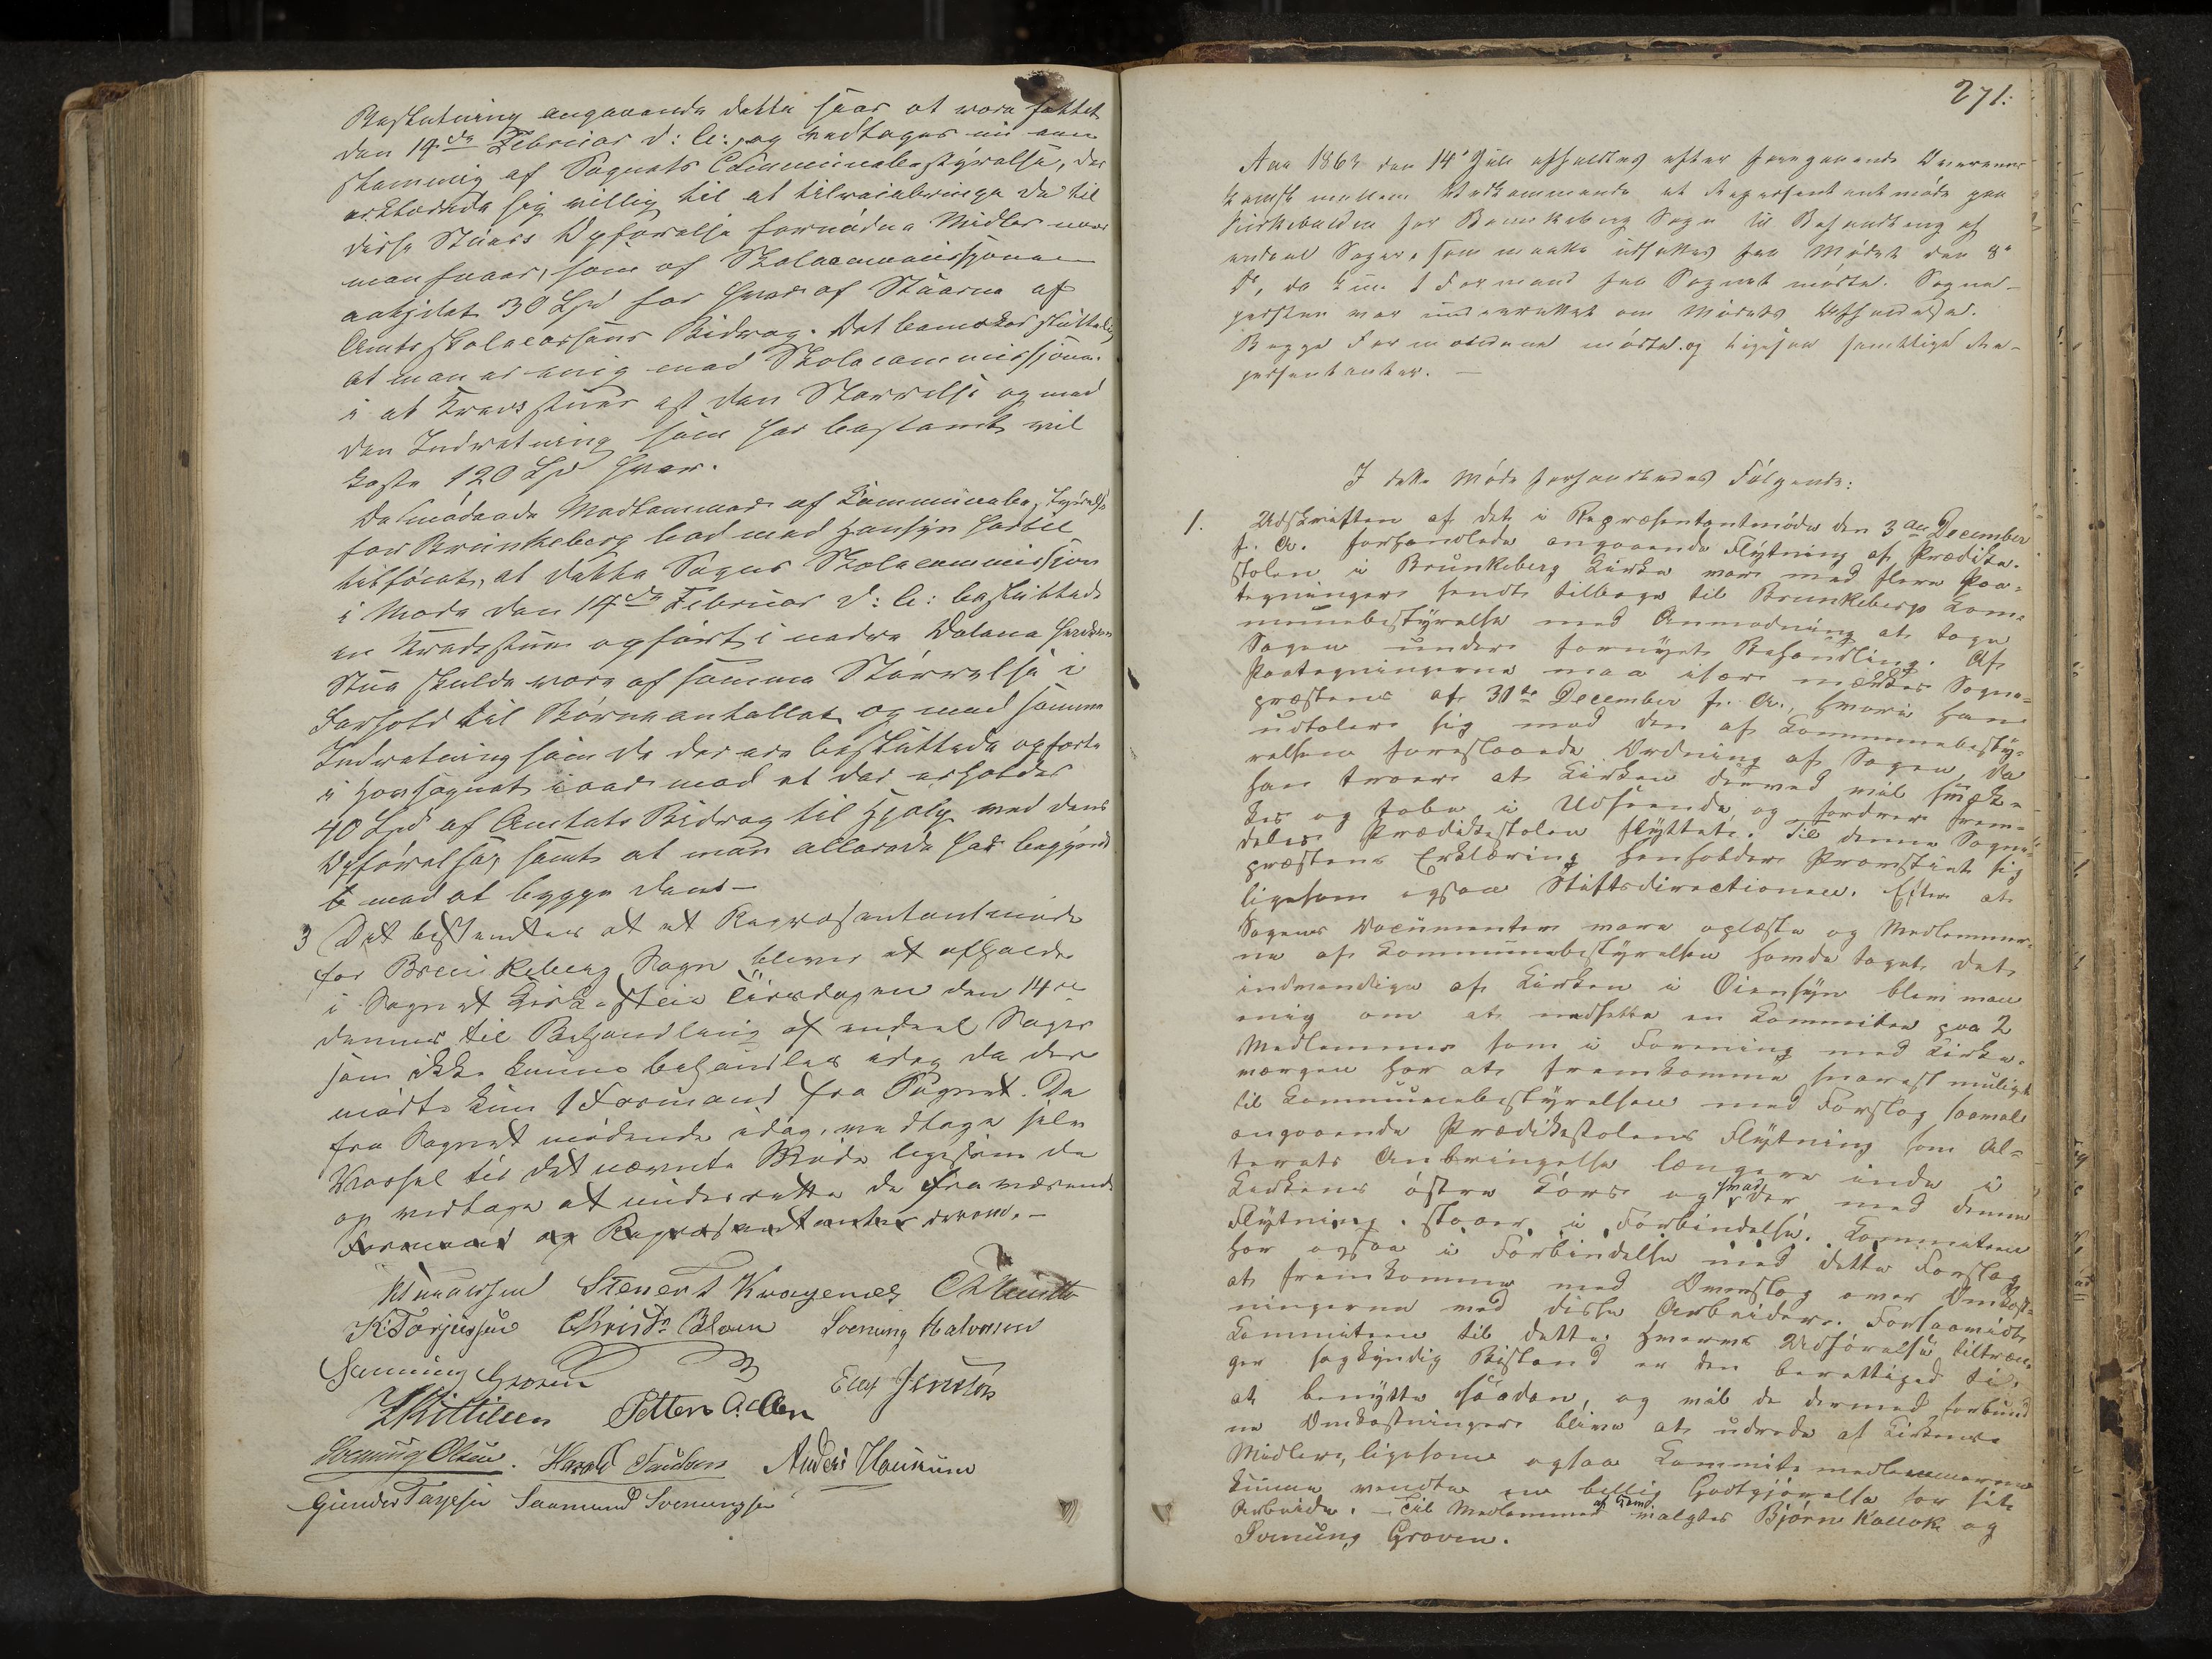 Beslutning angaaende dette sees at være fattet
den 14de Februar d: A: og vedtages nu even
stemmig af Sognets Communebestyrelse, der
erklærede sig villig til at tilveiebringe de til
disse Stuers Opførelse fornødne Midler naar
man faaer, som af Skolecommissjonen
antydet 30 Spd for hver af Stuerne af
Amtsskolecassens Bidrag. Det bemærkes sluttelig
at man er enig med Skolecommissjonen
i at Kredsstuer af den Størrelse og med
den Indretning som her bestemt vil
koste 120 Spd hver.
De mødende Medlemmer af Kommunebestyrelse
for Brunkeberg bad med Hensyn hertil
tilføiet, at dette Sogns Skolecommissjon
i Møde den 14de Februar d: A: besluttede
en Kredsstue opført i nedre Dalene hvilken
Stue skulde være af samme Størrelse i
Forhold til Børneantallet og med samme
Indretning som de der ere besluttede opførte
i Hovsognet ivaar med at der erholdes
40 Spd af Amtets Bidrag til Hjælp ved dens
Opførelse, samt at man allerede har begyndt
med at bygge den.
3 Det bestemtes at et Repræsentantmøde
for Brunkeberg Sogn bliver at afholde
i Sognet Kirkestein Tirsdagen den 14de
dennes til Behandling af endeel Sager
som ikke kunne behandles idag da der
mødte kun 1 Formand fra Sognet. De
fra Sognet mødende idag, vedtage selv
Varsel til det nævnte Møde ligesom de
og vedtage at underrette de fraværende
Formænd og Repræsentanter derom. –
Stenert Kragenes
K. Torjussen Christn Blom Svenung Halvorsen
Svenung Groven
Kittilsen Petter A. Olsen
Svenung Olsen. Harald Knudsen Anders
Gunder Tarjesen Saamund Svenungsen
271.
Aar 1863 den 14de Juli afholdtes efter foregaaende Overens-
komst mellem Vedkommende et Repræsentantmøde paa
Kirkebakken for Brunkeberg Sogn til Behandling af
endeel Sager, som maatte udsættes fra Mødet den 8de
ds, da kun 1 Formand fra Sognet mødte. Sogne-
presten var underrettet om Mødets Afholdelse.
Begge Formændene mødte og ligesaa samtlige Re-
præsentanter. –
I dette Møde forhandledes Følgende:
1. Udskriften af det i Repræsentantmøde den 3die December
f. A. forhandlede angaaende Flytning af Prædike-
stolen i Brunkeberg Kirke var med flere Paa-
tegninger sendt tilbage til Brunkebergs Kom-
munebestyrelse med Anmodning at tage
Sagen under fornyet Behandling. Af
Paategningerne maa især mærkes Sogne-
præstens af 31te December f. A., hvori han
udtaler sig mod den af Kommunebesty-
relsen foreslaaede Ordning af Sagen, da
han troer at Kirken derved vil svæk-
kes og tabe i Udseende og fordrer frem-
deles Prædikestolen flyttet. Til denne Sogne-
præstens Erklæring henholder Provstiet sig
ligesom ogsaa Stiftsdirectionen. Efter at
Sagens Documenter vare oplæste og Medlemmer-
ne af Kommunebestyrelsen havde taget det
indvendige af Kirken i Øiensyn blev man
enig om at nedsætte en Kommitee paa 2
Medlemmer som i Forening med Kirke-
værgen har at fremkomme snarest muligt
til Kommunebestyrelsen med Forslag saavel
angaaende Prædikestolens Flytning som Al-
terets Anbringelse længere inde i
Kirkens østre Kors og hvad der med denne
Flytning staaer i Forbindelse. Kommiteen
har ogsaa i Forbindelse med dette Forslag
at fremkomme med Overslag over Omkost-
ningerne ved disse Arbeider. Forsaavidt
Kommiteen til dette Hvervs Udførelse tiltræn-
ger sagkyndig Bistand er den berettiget til
at benytte saadan, og vil de dermed forbund
ne Omkostninger blive at udrede af Kirkens
Midler, ligesom ogsaa Kommitemedlemmerne
kunne vente en billig Godtgjørelse for sit
Arbeide. – Til Medlemmer af Komt. valgtes Bjørn Kallok og
Svenung Groven.